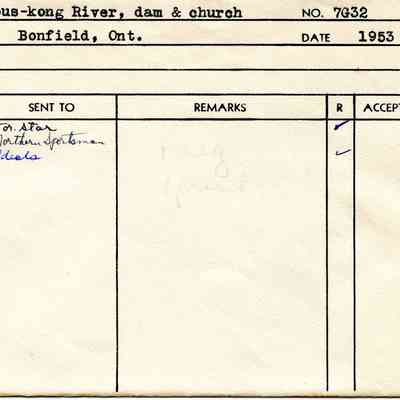 ous-kong River, dam & church NO. 7G32
Bonfield, Ont. DATE 1953
SENT TO REMARKS R ACCEPT
Tor. Star ✓
Northern Sportsman
Ideals ✓
neg
print